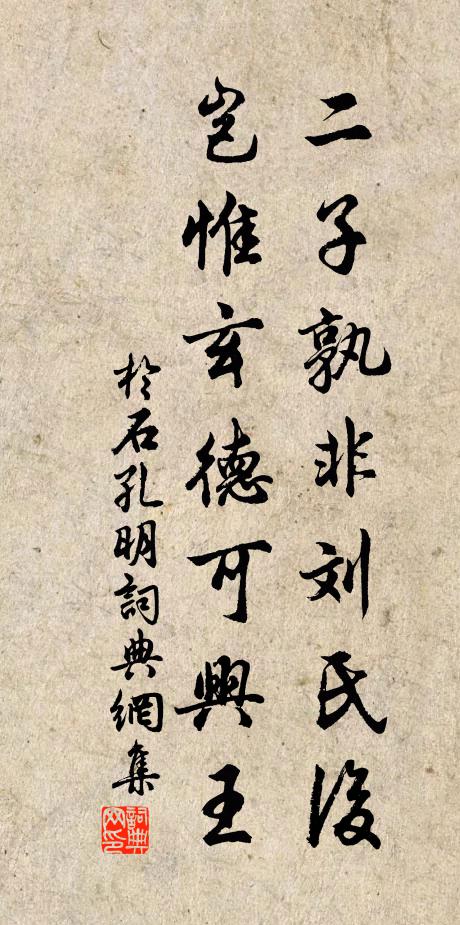 二子孰非刘氏後
岂惟玄德可興王
於石孔明詞典網集
詞典网印